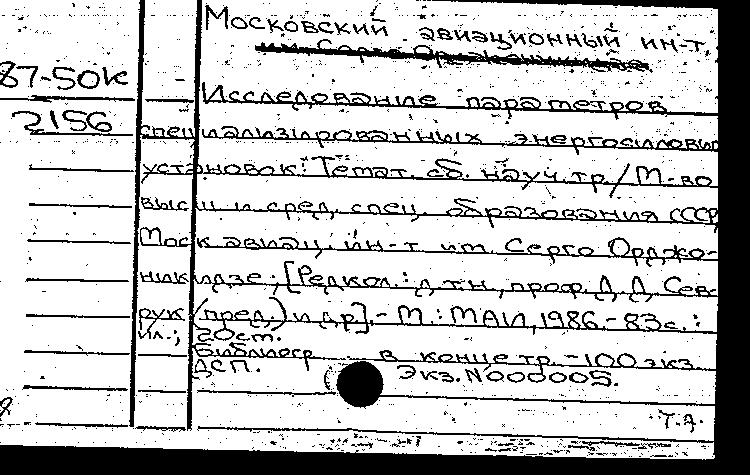 Московский авиационный ин-т,
им. Серго Орджоникидзе.
87-50к
Исследование параметров
2156
специализированных энергосиловых
установок: Темат. сб. науч. тр. / М-во
высш. и сред. спец. образования СССР,
Моск. авиац. ин-т им. Серго Орджо-
никидзе; [Редкол.: д.т.н., проф. Д. Д. Сев-
рук (пред.) и др]. - М.: МАИ, 1986. - 83с.:
ил.; 20ст.
Библиогр. в конце тр. - 100 экз.
ДСП. Экз. N000005.
Т.А.